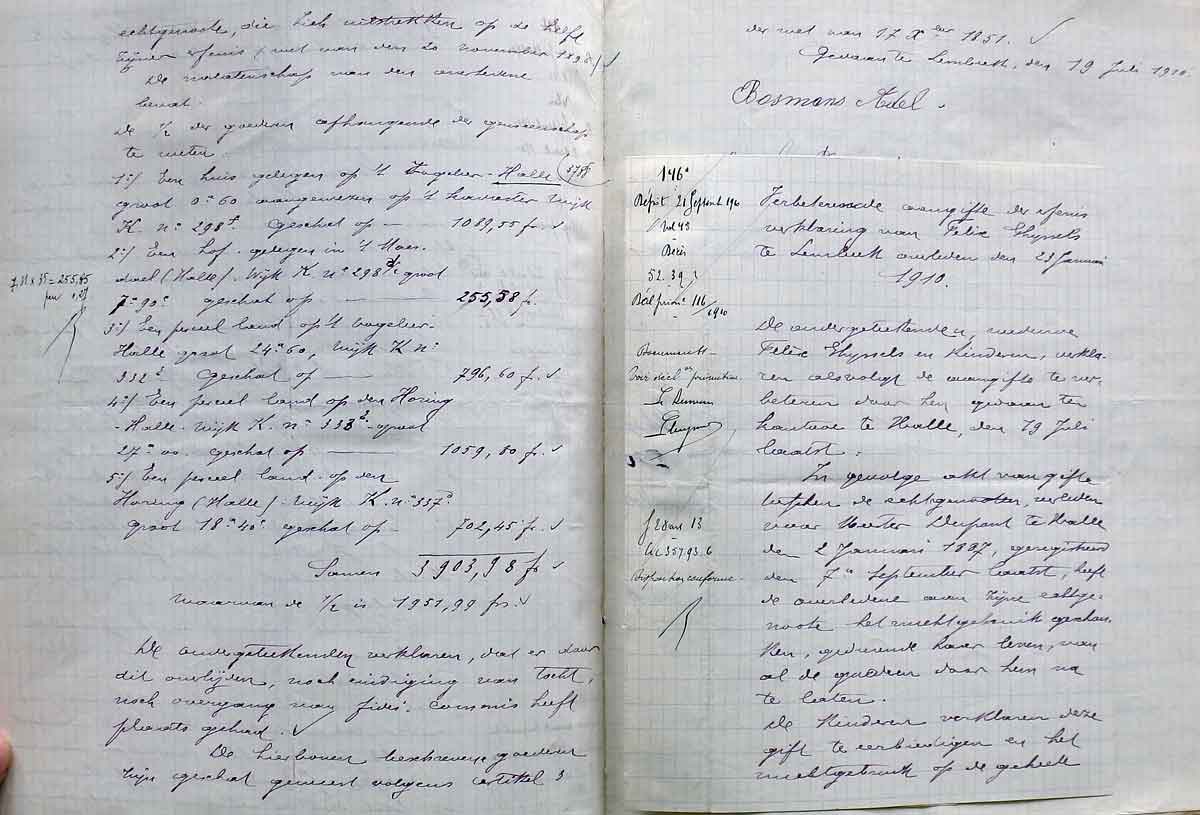 echtgenoote, die zich uitstrekken op de helft
zijner erfenis (wet van den 20 november 1896) ✓
De nalatenschap van den overledene
bevat:
De 1/2 der goederen afhangende der gemeenschap
te weten
1°/ Een huis gelegen op 't Vogelier-Halle
groot 0a 60 aangewezen op 't kadaster Wijk
K n° 298 geschat op — 1089,55 fr. ✓
2°/ Een hof gelegen in 't
(Halle). Wijk K. n° 298 groot
7a 90c geschat op — 255,58 fr.
7,31 x 35 = 255,85
3°/ Een perceel land op 't Vogelier-
Halle groot 24a 60, Wijk K n°
332d geschat op — 796,60 fr. ✓
4°/ Een perceel land op den Horing
-Halle- Wijk K. n° 333 groot
27a 00. geschat op — 1059,80 fr. ✓
5°/ Een perceel land op den
Horing (Halle) Wijk K. n° 337
groot 18a 40c geschat op — 702,45 fr. ✓
Samen 3903,98 fr ✓
Waarvan de 1/2 is 1951,99 frs. ✓
De ondergeteekenden verklaren, dat er door
dit overlijden, noch eindiging van tocht,
noch overgang van fidei-commis heeft
plaats gehad. ✓
De hierboven beschreven goederen
zijn geschat geweest volgens artikel 3
der wet van 17 Xber 1851. ✓
Gedaan te Lembeek, den 19 Juli 1910.
Bosmans Adel.
146a
Dépôt 21 Septemb 1910
Vol 43
52.39
116/1910
Documents
Voir décl on primitive
13
357.93.6
Disposition conforme
Verbeterende aangifte der erfenis
verklaring van Felix Ghysels
te Lembeek overleden den 23 Januari
1910.
De ondergeteekenden, weduwe
Felix Ghysels en Kinderen, verkla-
ren alsvolgt de aangifte te ver-
beteren door hen gedaan ten
kantoore te Halle, den 19 Juli
laatst.
In gevolge akt van gifte
tusschen de echtgenooten, verleden
voor Meester Dupont te Halle
den 2 Januari 1897, geregistreerd
den 7n September laatst, heeft
de overledene aan zijne echtge-
noote het vruchtgebruik geschon-
ken, gedurende haar leven, van
al de goederen door hem na
te laten.
De Kinderen verklaren deze
gift te eerbiedigen en het
vruchtgebruik op de geheele